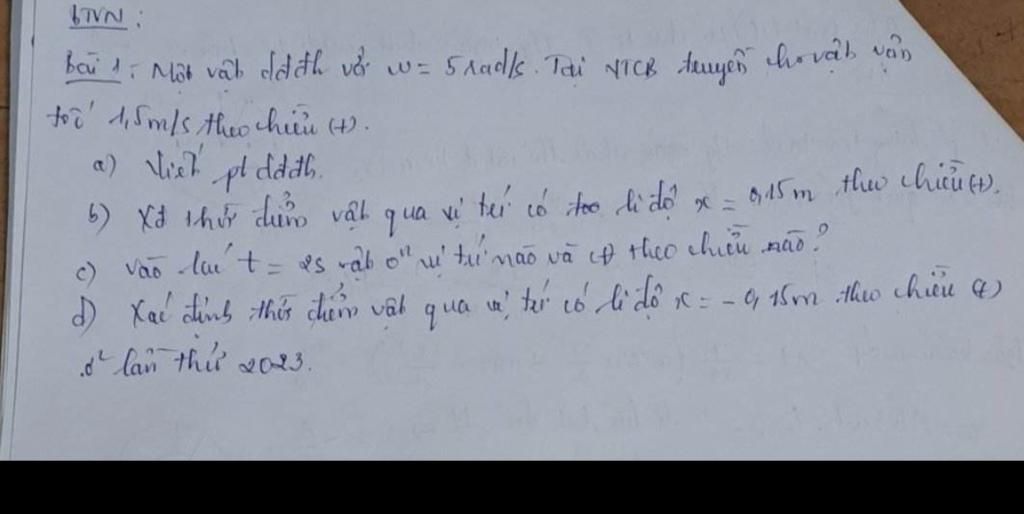 BTVN :
Bài 1 : Một vật dđđh với w = 5 rad/s. Tại VTCB truyền cho vật vận
tốc 1,5m/s theo chiều (+).
a) Viết pt dđđh.
b) Xđ thời điểm vật qua vị trí có li độ x = 0,15m theo chiều (+).
c) vào lúc t = 2s vật ở vị trí nào và cđ theo chiều nào?
d) Xác định thời điểm vật qua vị trí có li độ x = - 0,15m theo chiều (+)
lần thứ 2023.